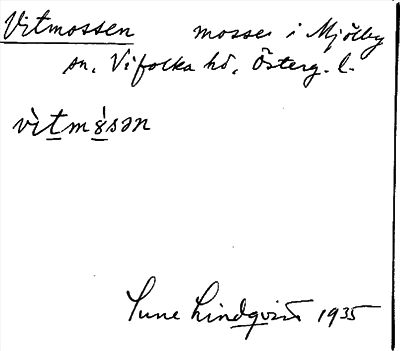 Vitmossen mosse i Mjölby
sn, Vifolka hd, Österg. l.
vìtmòsən
Sune Lindqvist 1935